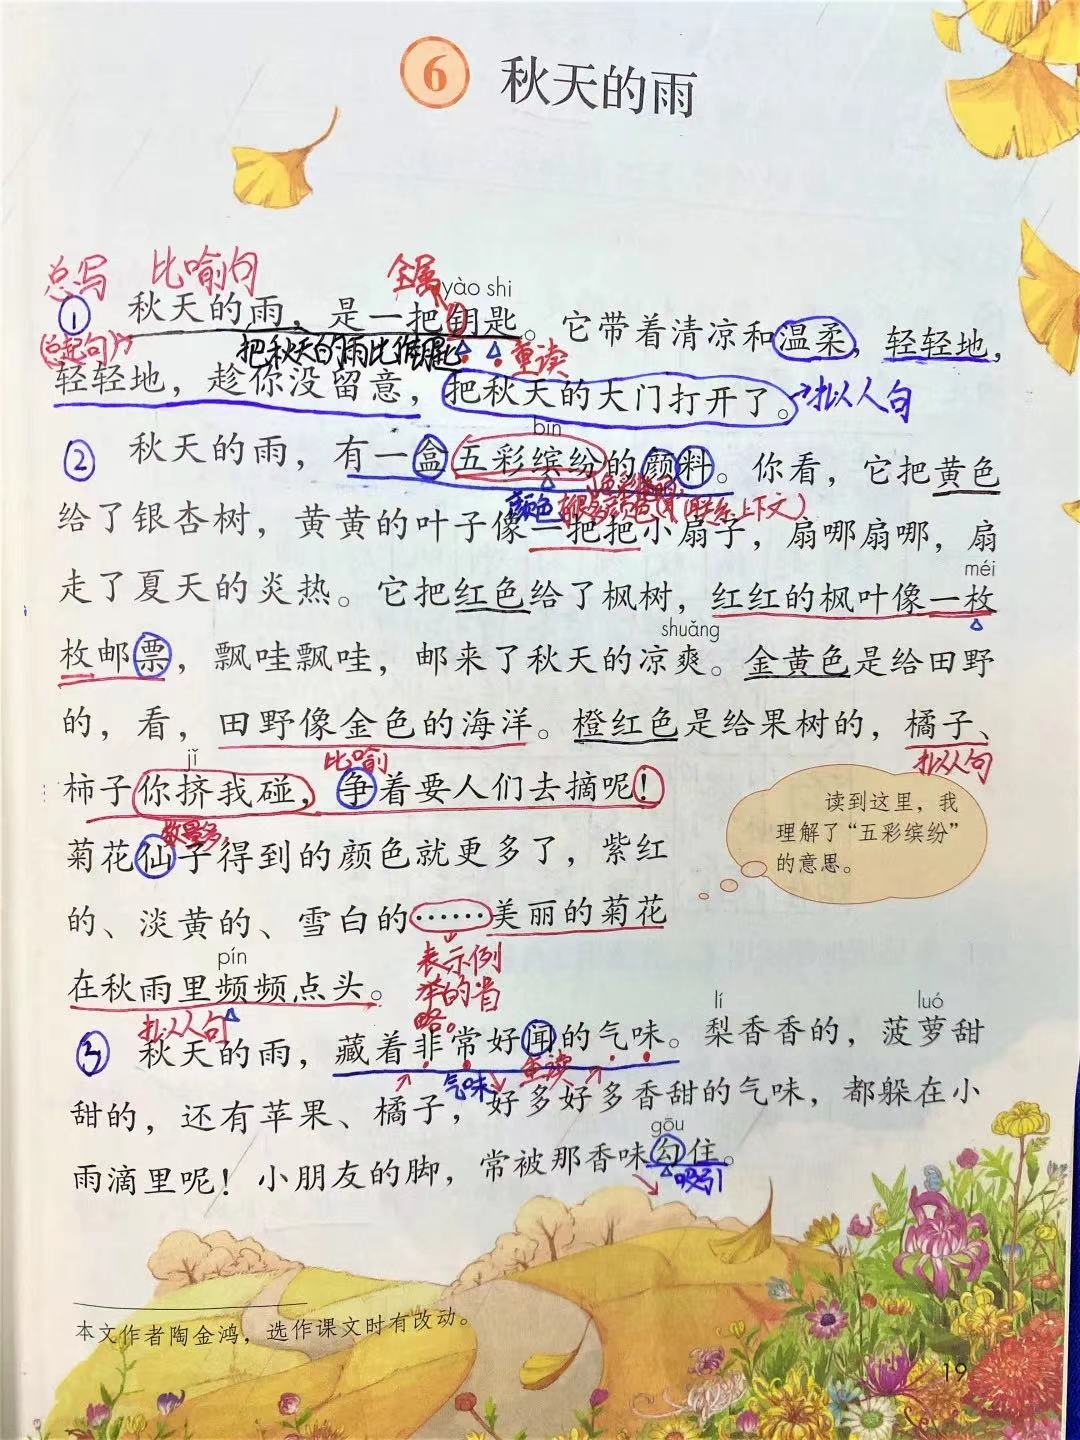 6 秋天的雨
总写 比喻句 金属
yào shi
① 秋天的雨，是一把钥匙。它带着清凉和温柔，轻轻地，
(总起句) 把秋天的雨比作钥匙 重读
轻轻地，趁你没留意，把秋天的大门打开了。→拟人句
bīn
② 秋天的雨，有一盒五彩缤纷的颜料。你看，它把黄色
颜色 很多颜色 (联系上下文)
给了银杏树，黄黄的叶子像一把把小扇子，扇哪扇哪，扇
走了夏天的炎热。它把红色给了枫树，红红的枫叶像一枚
méi
shuǎng
枚邮票，飘哇飘哇，邮来了秋天的凉爽。金黄色是给田野
的，看，田野像金色的海洋。橙红色是给果树的，橘子、
jǐ 比喻 拟人句
柿子你挤我碰，争着要人们去摘呢！
数量多
菊花仙子得到的颜色就更多了，紫红
的、淡黄的、雪白的……美丽的菊花
pín
在秋雨里频频点头。
拟人句
表示例
举的省
略。
读到这里，我
理解了“五彩缤纷”
的意思。
lí luó
③ 秋天的雨，藏着非常好闻的气味。梨香香的，菠萝甜
气味 重读
甜的，还有苹果、橘子，好多好多香甜的气味，都躲在小
gōu
雨滴里呢！小朋友的脚，常被那香味勾住。
吸引
本文作者陶金鸿，选作课文时有改动。
19